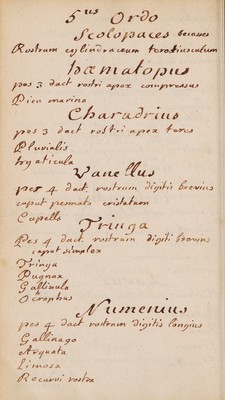 5us Ordo
Scolopaces becasses
Rostrum cylindraceum teretiusculum
hæmatopus
pes 3 dact rostri apex compressus
Pica marina
Charadrius
pes 3 dact rostri apex teres
Pluvialis
hyaticula
Vanellus
pes 4 dact. rostrum digitis brevius
caput pennato cristatum
Capella
Tringa
Pes 4 dact. rostrum digiti
caput simplex
Tringa
Pugnax
Gallinula
Ocrophus
Numenius
pes 4 dact rostrum digitis longius
Gallinago
Arquata
Limosa
Recurvi rostra